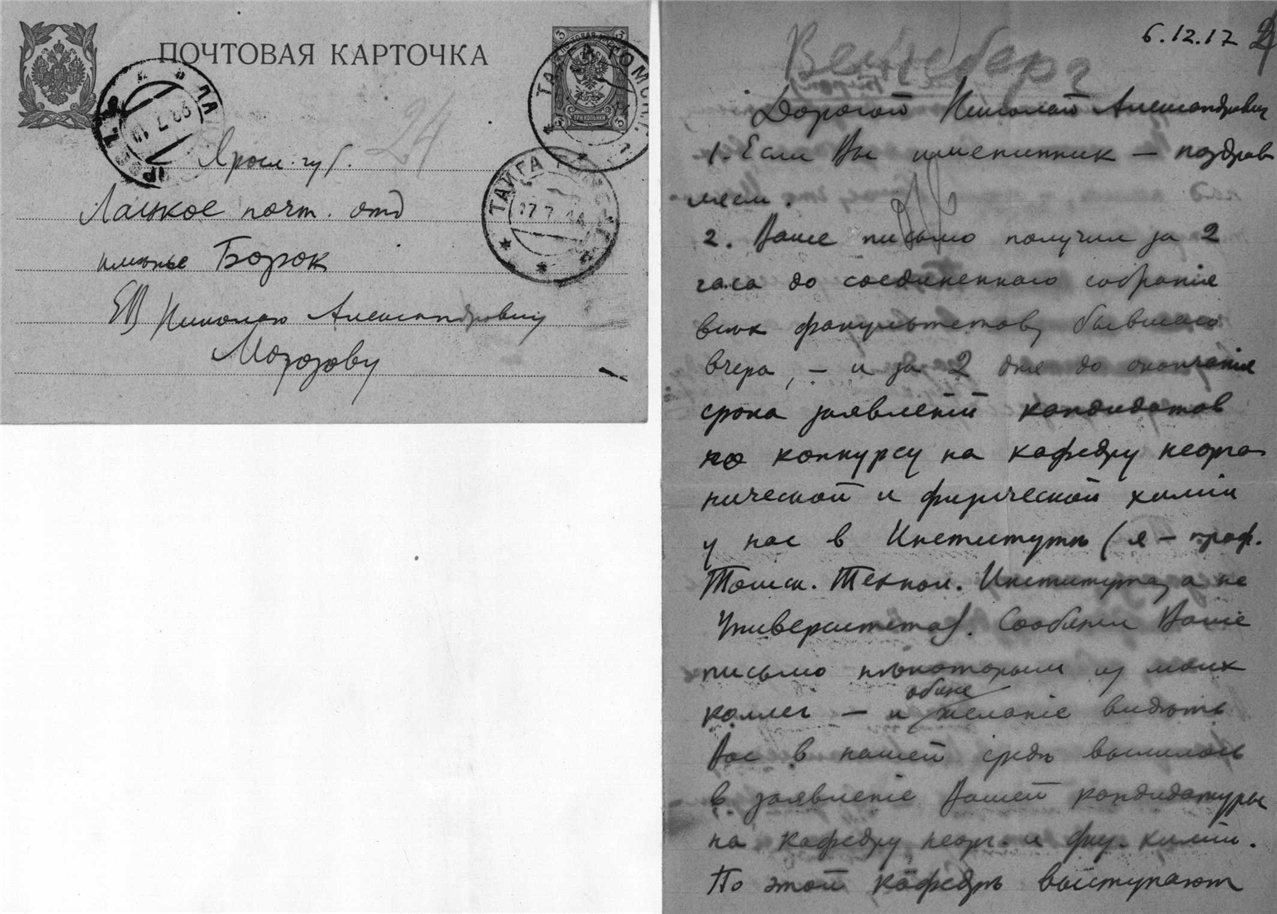 ПОЧТОВАЯ КАРТОЧКА
ТАЙГА
ТАЙГА
24
Яросл. губ.
Лацкое почт. отд
имѣнье Борок
ЕВ Николаю Александровичу
Морозову
6.12.17
Вейнберг
Дорогой Николай Александрович
1. Если Вы именинник – поздрав
ляем.
2. Ваше письмо получил за 2
часа до соединеннаго собранія
всѣх факультетов, бывшаго
вчера, – и за 2 дня до окончанія
срока заявленій кандидатов
по конкурсу на кафедру неорга
нической и физической химіи
у нас в Институтѣ (я – проф.
Томск. Технол. Института, а не
Университета). Сообщил Ваше
письмо нѣкоторым из моих
коллег – и общее желаніе видѣть
Вас в нашей средѣ вылилось
в заявленіе Вашей кандидатуры
на кафедру неорг. и физ. химіи.
По этой кафедрѣ выступают